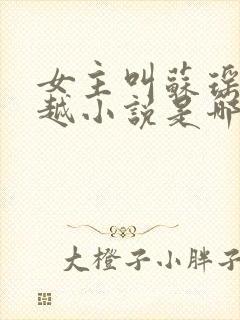 女主叫蘇瑤
越小說是哪
大橙子小胖子